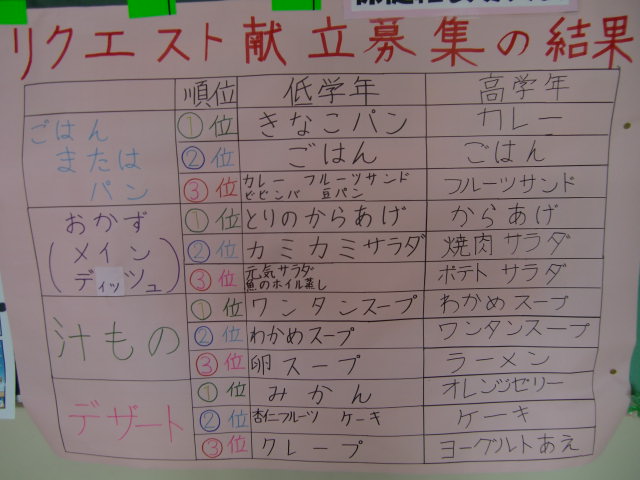 リクエスト献立募集の結果
順位 低学年 高学年
ごはん
または
パン
①位 きなこパン カレー
②位 ごはん ごはん
③位 カレー フルーツサンド フルーツサンド
ビビンバ 豆パン
おかず
(メイン
ディッシュ)
①位 とりのからあげ からあげ
②位 カミカミサラダ 焼肉サラダ
③位 元気サラダ ポテトサラダ
魚のホイル蒸し
汁もの
①位 ワンタンスープ わかめスープ
②位 わかめスープ ワンタンスープ
③位 卵スープ ラーメン
デザート
①位 みかん オレンジゼリー
②位 杏仁フルーツ ケーキ ケーキ
③位 クレープ ヨーグルトあえ